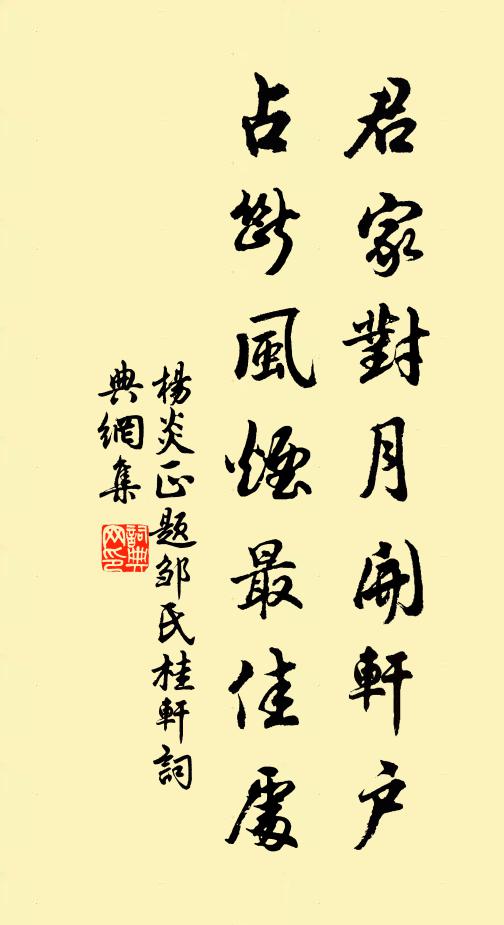 君家對月開軒户
占斷風煙最佳處
楊炎正題鄒氏桂軒詞
典網集
詞典網印